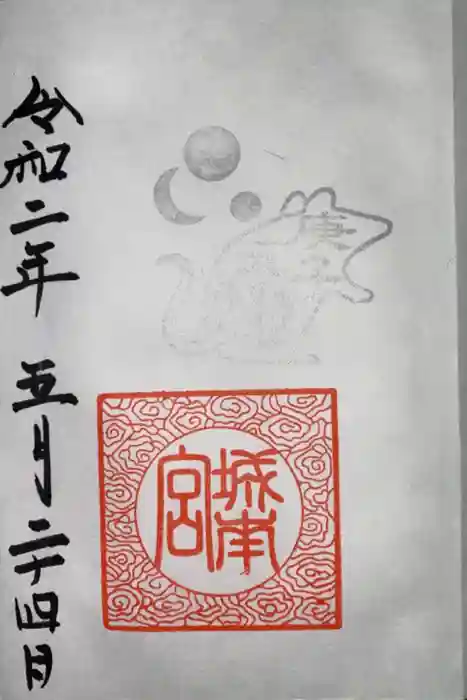 庚子
城南宮
令和二年 五月二十四日